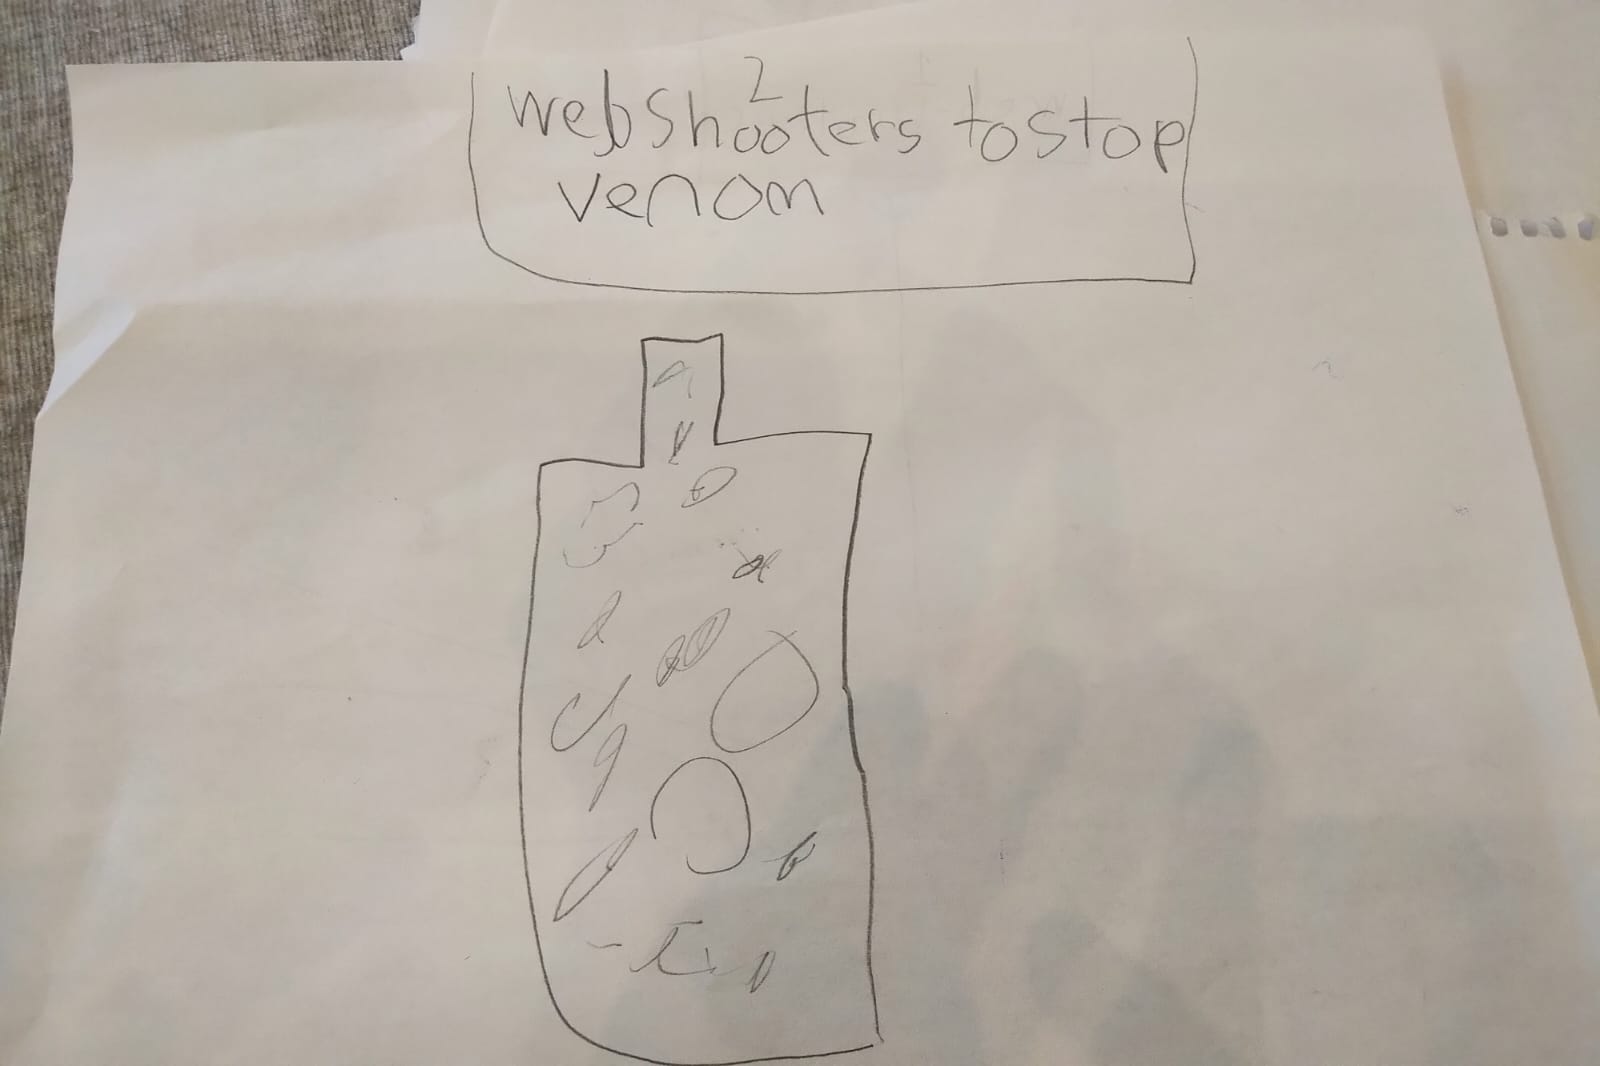 2
webshooters to stop
venom